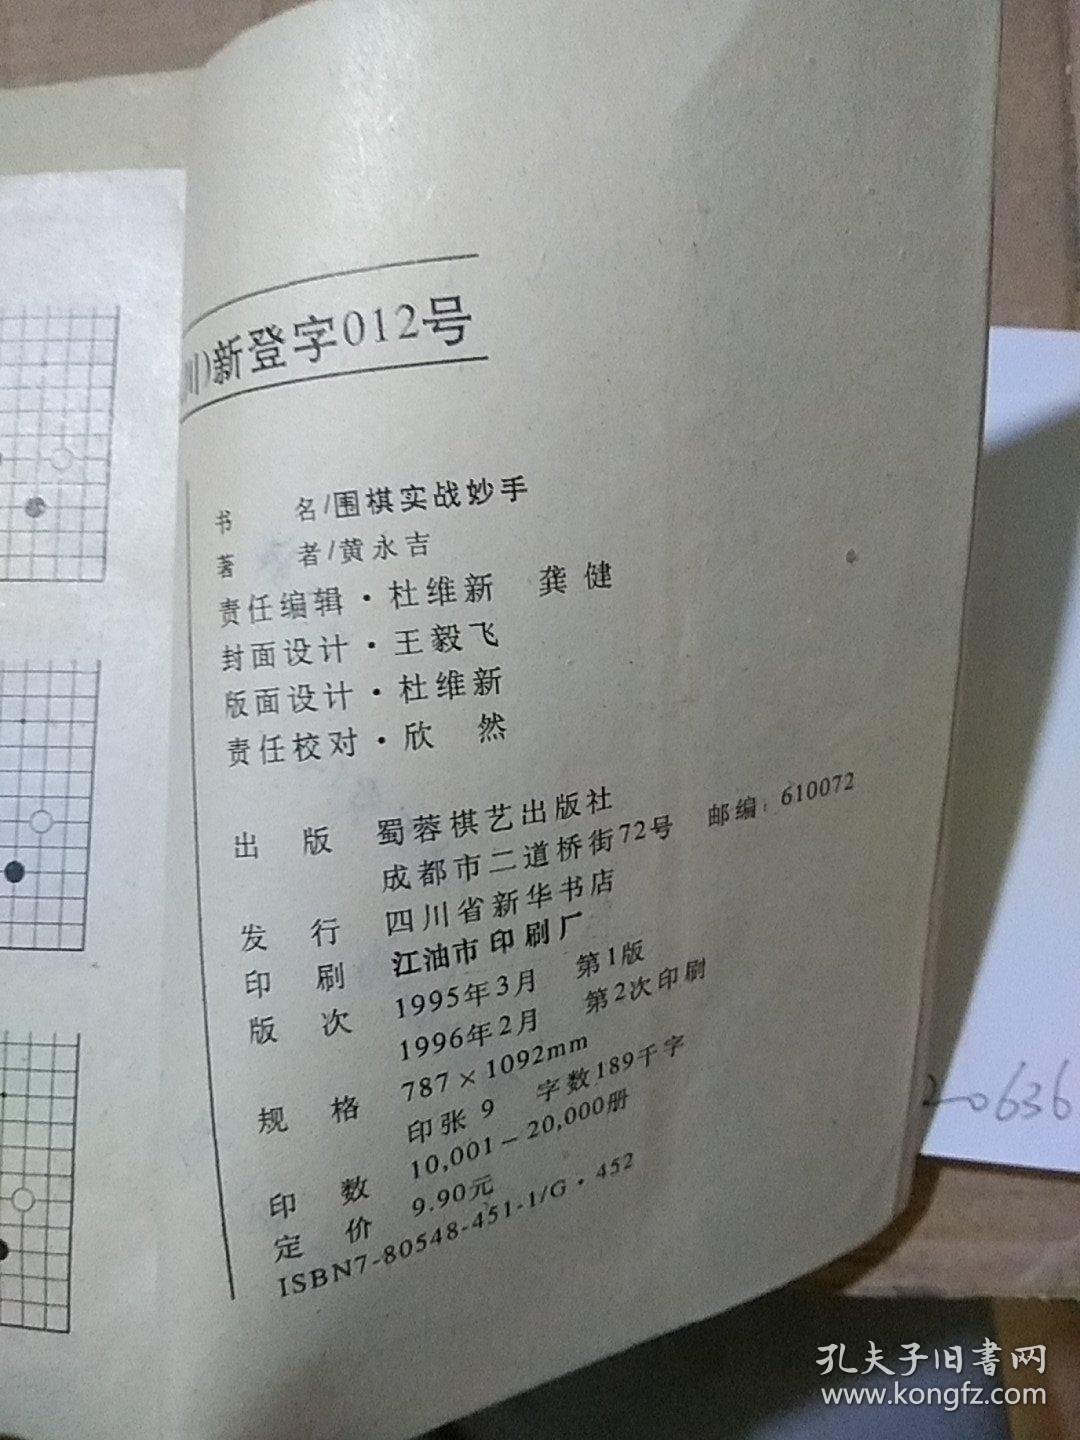 川)新登字012号
书 名/围棋实战妙手
著 者/黄永吉
责任编辑·杜维新 龚健
封面设计·王毅飞
版面设计·杜维新
责任校对·欣 然
出 版 蜀蓉棋艺出版社
成都市二道桥街72号 邮编：610072
发 行 四川省新华书店
印 刷 江油市印刷厂
版 次 1995年3月 第1版
1996年2月 第2次印刷
规 格 787×1092mm
印张 9 字数189千字
印 数 10,001－20,000册
定 价 9.90元
ISBN7-80548-451-1/G·452
20636
孔夫子旧書网
www.kongfz.com